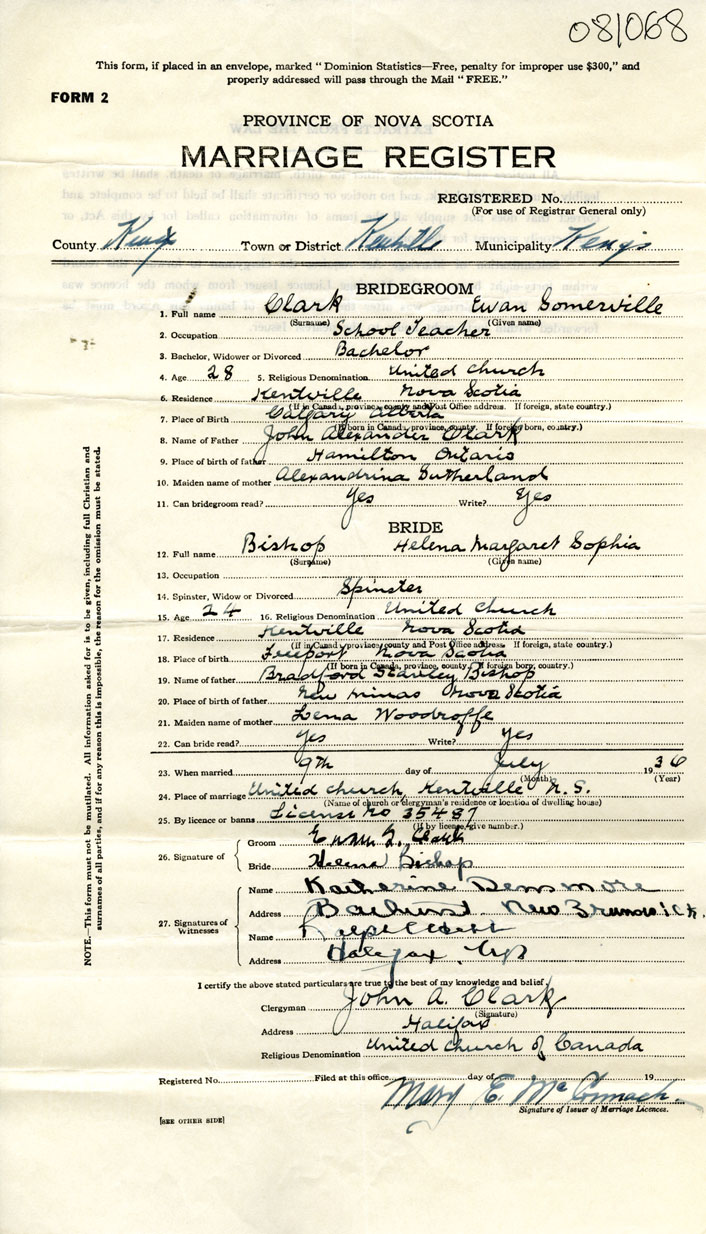 081068
This form, if placed in an envelope, marked "Dominion Statistics—Free, penalty for improper use $300," and
properly addressed will pass through the Mail "FREE."
FORM 2
PROVINCE OF NOVA SCOTIA
MARRIAGE REGISTER
REGISTERED No.
(For use of Registrar General only)
County Kings Town or District Kentville Municipality Kings
BRIDEGROOM
1. Full name Clark Ewan Somerville
(Surname) (Given name)
2. Occupation School Teacher
3. Bachelor, Widower or Divorced Bachelor
4. Age 28 5. Religious Denomination United Church
6. Residence Kentville Nova Scotia
(If in Canada, province, county and Post Office address. If foreign, state country.)
7. Place of Birth Calgary Alberta
(If born in Canada, province, county. If foreign born, country.)
8. Name of Father John Alexander Clark
9. Place of birth of father Hamilton Ontario
10. Maiden name of mother Alexandrina Sutherland
11. Can bridegroom read? Yes Write? Yes
BRIDE
12. Full name Bishop Helena Margaret Sophia
(Surname) (Given name)
13. Occupation
14. Spinster, Widow or Divorced Spinster
15. Age 24 16. Religious Denomination United Church
17. Residence Kentville Nova Scotia
(If in Canada, province, county and Post Office address. If foreign, state country.)
18. Place of birth Freeport Nova Scotia
(If born in Canada, province, county. If foreign born, country.)
19. Name of father Bradford Stanley Bishop
20. Place of birth of father New Minas Nova Scotia
21. Maiden name of mother Lena Woodroffe
22. Can bride read? Yes Write? Yes
23. When married 9th day of July 1936
(Month) (Year)
24. Place of marriage United Church, Kentville N.S.
(Name of church or clergyman's residence or location of dwelling house)
25. By licence or banns License No 35487
(If by license, give number.)
26. Signature of Groom Ewan S. Clark
Bride Helena Bishop
27. Signatures of Witnesses Name Katherine Densmore
Address Bathurst New Brunswick.
Name
Address Halifax NS
I certify the above stated particulars are true to the best of my knowledge and belief
Clergyman John A. Clark
(Signature)
Address Halifax
Religious Denomination United Church of Canada
Registered No. Filed at this office day of 19
Mary E. McCormack.
Signature of Issuer of Marriage Licences.
[SEE OTHER SIDE]
NOTE.—This form must not be mutilated. All information asked for is to be given, including full Christian and
surnames of all parties, and if for any reason this is impossible, the reason for the omission must be stated.